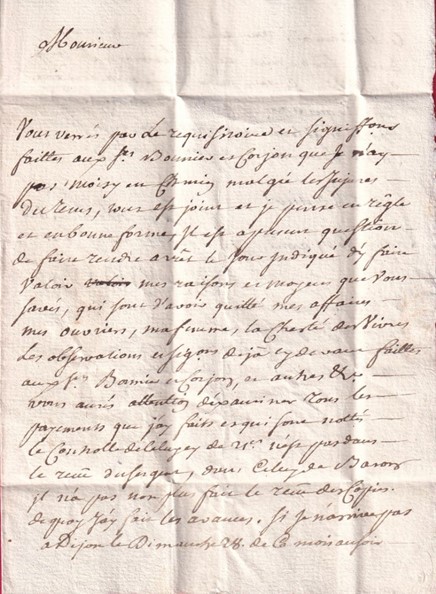 Monsieur
Vous verrés par Le requisitoire et signiffions
faittes aux Srs Bonnier et Corjon que Je n'ay
pas moisy en Chemin malgré les Injures
Du tems, tout est joint et je pense en règle
et en bonne forme, Il est a present question
de faire rendre arrêt le Jour indiqué d'y faire
Valoir mes raisons et moyens que Vous
savés, qui sont d'avoir quitté mes affaires
mes ouvriers, ma femme, la Cherté des Vivres
Les observations et deja cy devant faittes
aux Srs Bonnier et Corjon, et autres &c.
vous aurés attention d'examiner tous les
payements que j'ay faits et qui sont nottés
le Controlle de celuy cy de n'est pas dans
le reçu, dans Celuy de
il n'a pas non plus fait le reçu des Copies
de quoy J'ay fait les avances. Si je n'arrive pas
a Dijon le Dimanche 28. de Ce mois au soir